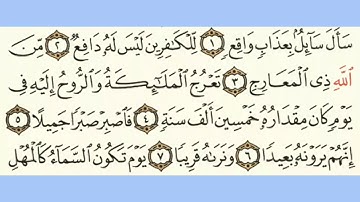 سَأَلَ سَآئِلُۢ بِعَذَابٖ وَاقِعٖ ١ لِّلۡكَٰفِرِينَ لَيۡسَ لَهُۥ دَافِعٞ ٢ مِّنَ
ٱللَّهِ ذِي ٱلۡمَعَارِجِ ٣ تَعۡرُجُ ٱلۡمَلَٰٓئِكَةُ وَٱلرُّوحُ إِلَيۡهِ فِي
يَوۡمٖ كَانَ مِقۡدَارُهُۥ خَمۡسِينَ أَلۡفَ سَنَةٖ ٤ فَٱصۡبِرۡ صَبۡرٗا جَمِيلًا ٥
إِنَّهُمۡ يَرَوۡنَهُۥ بَعِيدٗا ٦ وَنَرَىٰهُ قَرِيبٗا ٧ يَوۡمَ تَكُونُ ٱلسَّمَآءُ كَٱلۡمُهۡلِ